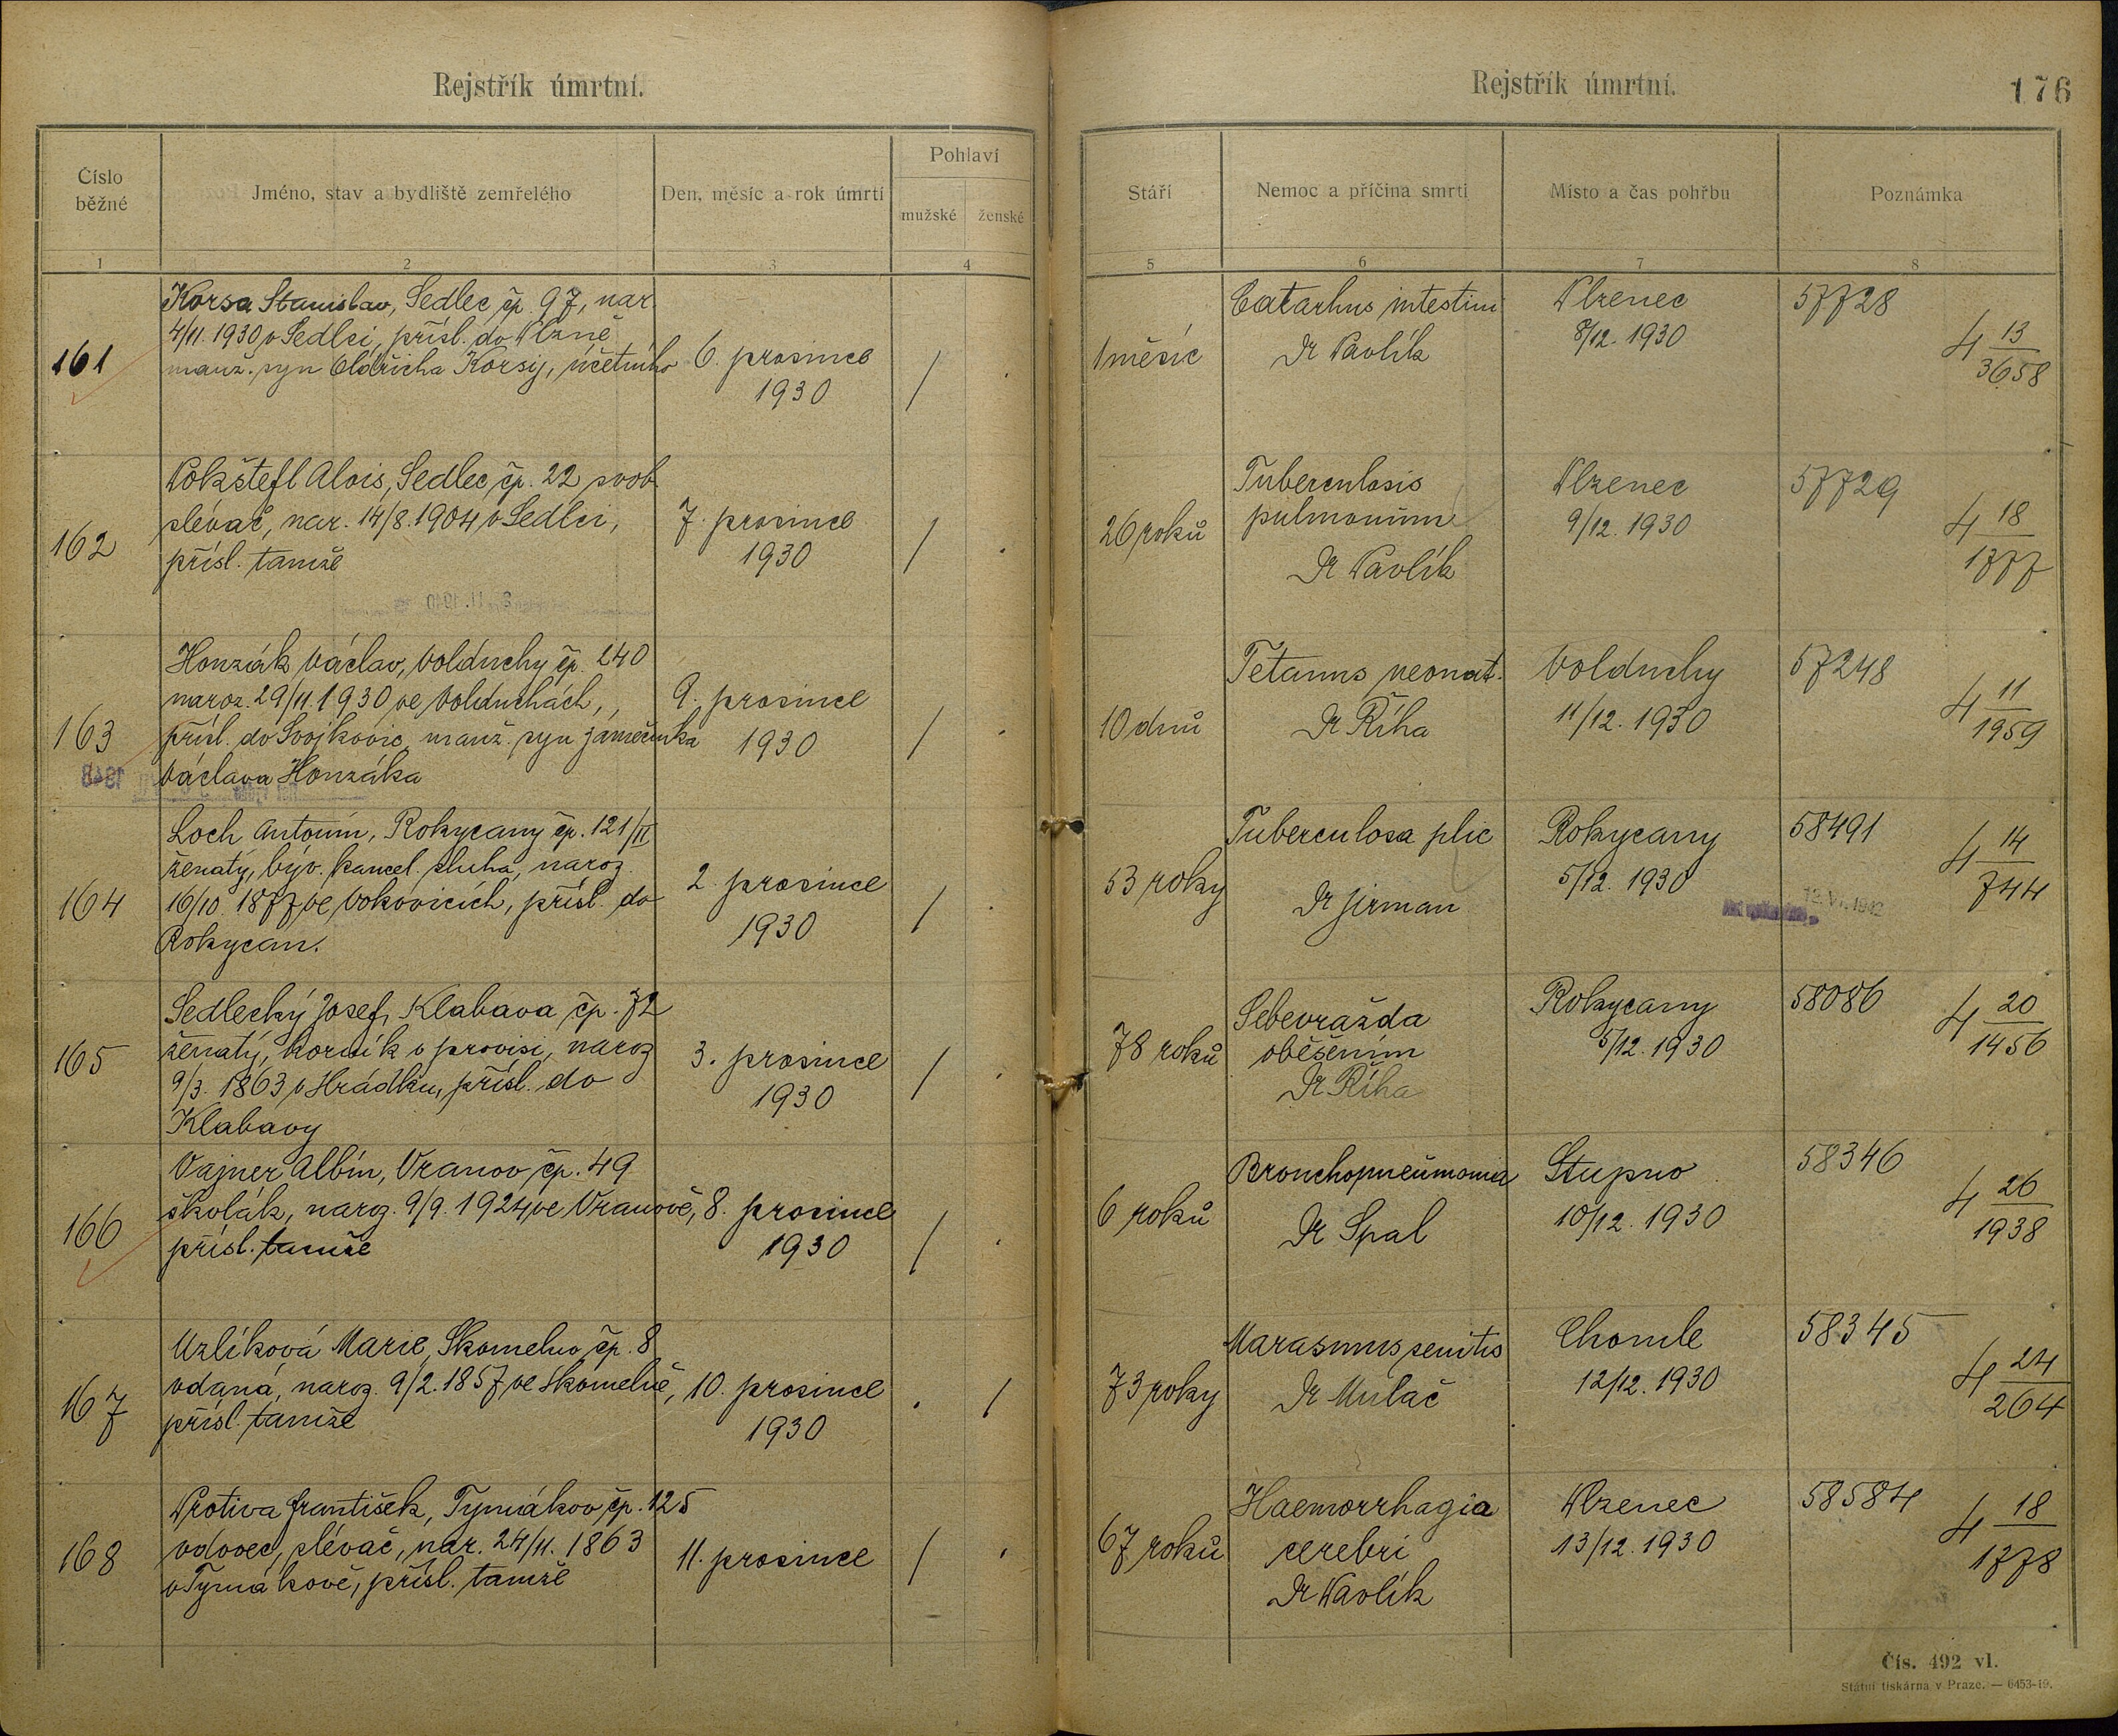 Rejstřík úmrtní.
Číslo běžné
Jméno, stav a bydliště zemřelého
Den, měsíc a rok úmrtí
Pohlaví
mužské
ženské
1
2
3
4
161
Korsa Stanislav, Sedlec čp. 97, nar.
4/11. 1930 v Sedlci, přísl. do Plzně
manž. syn Oldřicha Korsy, účetního
6. prosince
1930
/
162
Pokštefl Alois, Sedlec čp. 22 svob.
slévač, nar. 14/8. 1904 v Sedlci,
přísl. tamže
7. prosince
1930
/
163
Honzák Václav, Volduchy čp. 240
naroz. 29/11. 1930 ve Volduchách,
přísl. do Svojkovic, manž. syn
Václava Honzáka
9. prosince
1930
/
164
Loch Antonín, Rokycany čp. 121/II
ženatý, býv. kancel. sluha, naroz.
16/10. 1877 ve Vokovicích, přísl. do
Rokycan.
2. prosince
1930
/
165
Sedlecký Josef, Klabava čp. 72
ženatý, horník v provisi, naroz
9/3. 1863 v Hrádku, přísl. do
Klabavy
3. prosince
1930
/
166
Vajner Albín, Vranov čp. 49
školák, naroz. 9/9. 1924 ve Vranově,
přísl. tamže
8. prosince
1930
/
167
Uzlíková Marie, Skomelno čp. 8
vdaná, naroz. 9/2. 1857 ve Skomelně,
přísl. tamže
10. prosince
1930
/
168
Protiva František, Tymákov čp. 125
vdovec, slévač, nar. 24/11. 1863
v Tymákově, přísl. tamže
11. prosince
/
Rejstřík úmrtní.
176
Stáří
Nemoc a příčina smrti
Místo a čas pohřbu
Poznámka
5
6
7
8
1 měsíc
Catarhus intestini
Dr Pavlík
Plzenec
8/12. 1930
57728
4 13/3658
26 roků
Tuberculosis
pulmonum
Dr Pavlík
Plzenec
9/12. 1930
57729
4 18/1777
10 dnů
Tetanus neonat.
Dr Říha
Volduchy
11/12. 1930
57248
4 11/1959
53 roky
Tuberculosa plic
Dr Jirman
Rokycany
5/12. 1930
58491
4 14/744
12. VI. 1942
78 roků
Sebevražda
oběšením
Dr Říha
Rokycany
5/12. 1930
58086
4 20/1456
6 roků
Bronchopneumonia
Dr Spal
Stupno
10/12. 1930
58346
4 26/1938
73 roky
Marasmus senilis
Dr Mulač
Chomle
12/12. 1930
58345
4 24/264
67 roků
Haemorrhagia
cerebri
Dr Pavlík
Plzenec
13/12. 1930
58584
4 18/1778
Čís. 492 vl.
Státní tiskárna v Praze. — 6453-19.